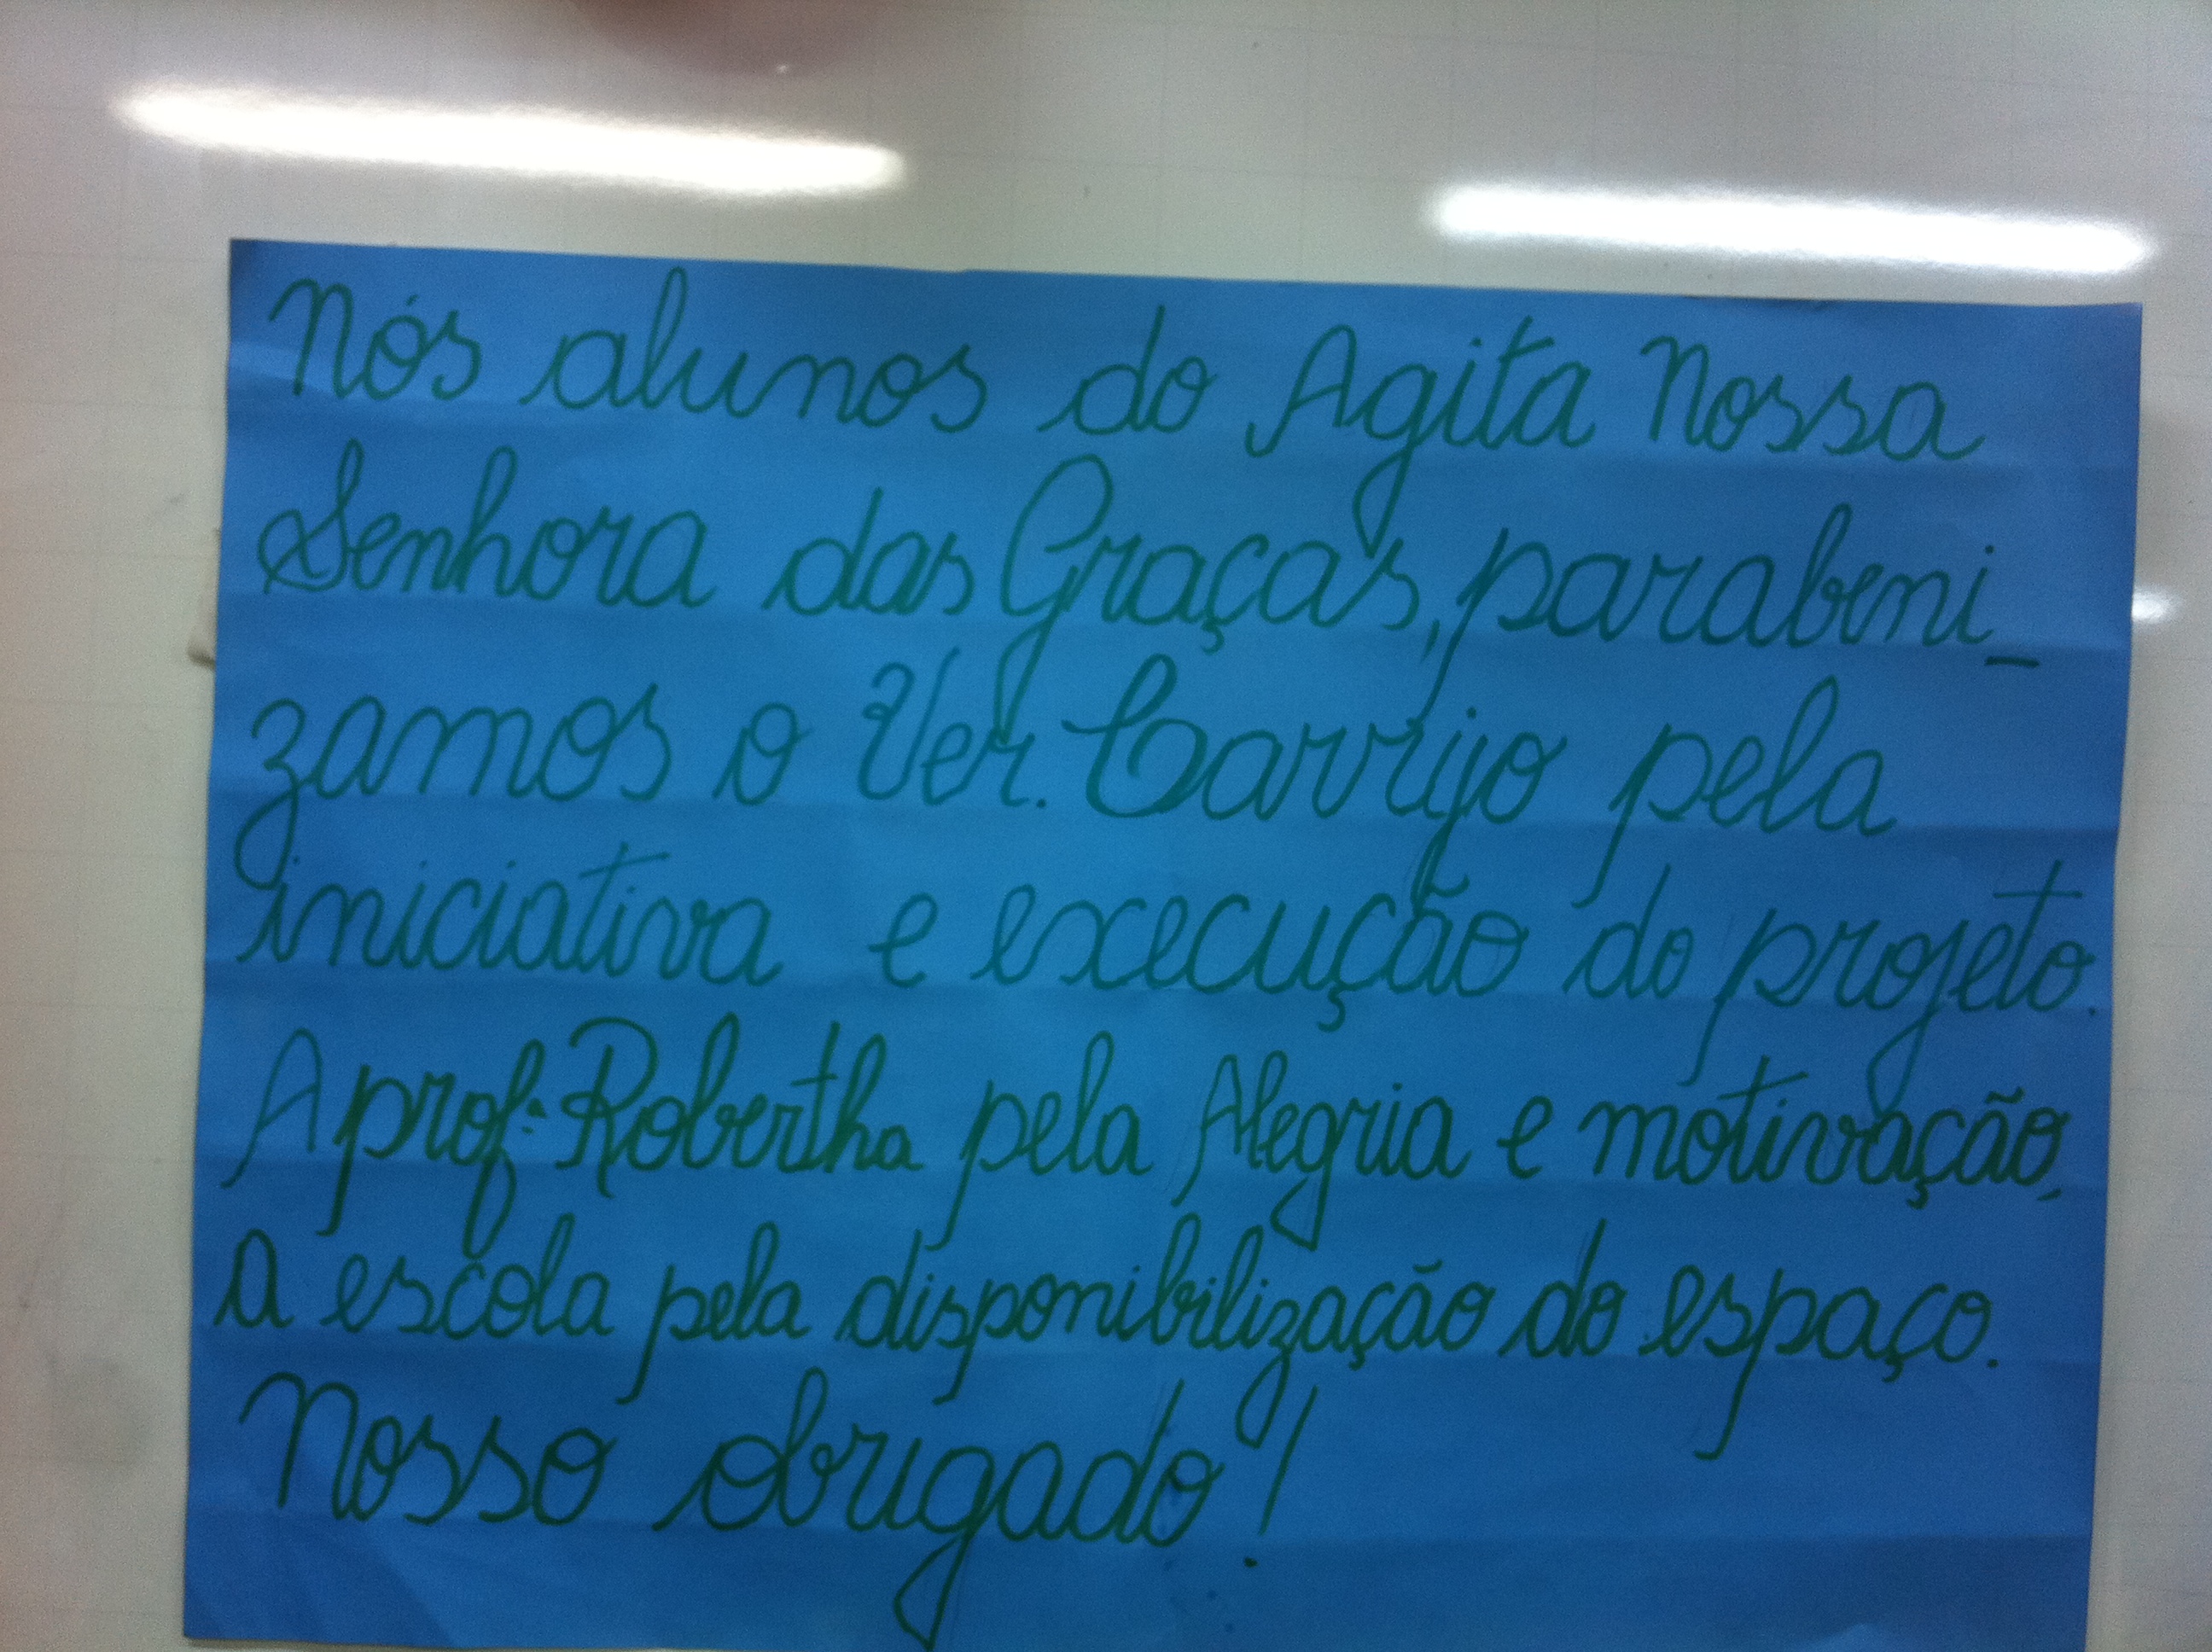 Nós alunos do Agita Nossa
Senhora das Graças, parabeni_
zamos o Ver. Carrijo pela
iniciativa e execução do projeto.
A prof.ª Robertha pela Alegria e motivação,
a escola pela disponibilização do espaço.
Nosso obrigado!